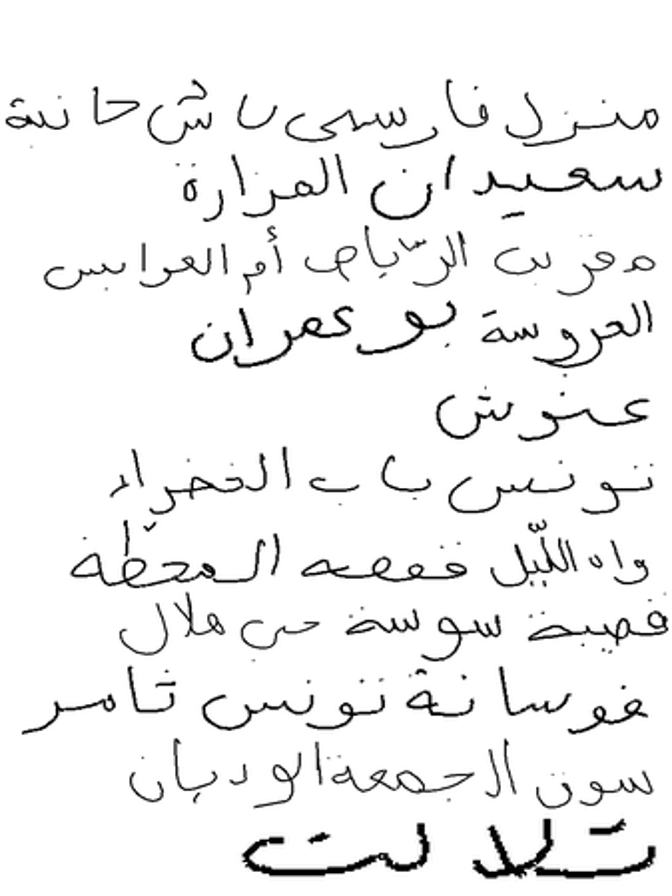 منزل فارسي باش حانبة
سعيدان المزارة
مفرق الرّياض أم العرايس
العروسة بو عمران
عنوش
تونس باب الخضراء
واد اللّيل قفصه المحطّة
قصبة سوسة حي هلال
فوسانة تونس ثامر
سوق الجمعة الوديان
تلالت